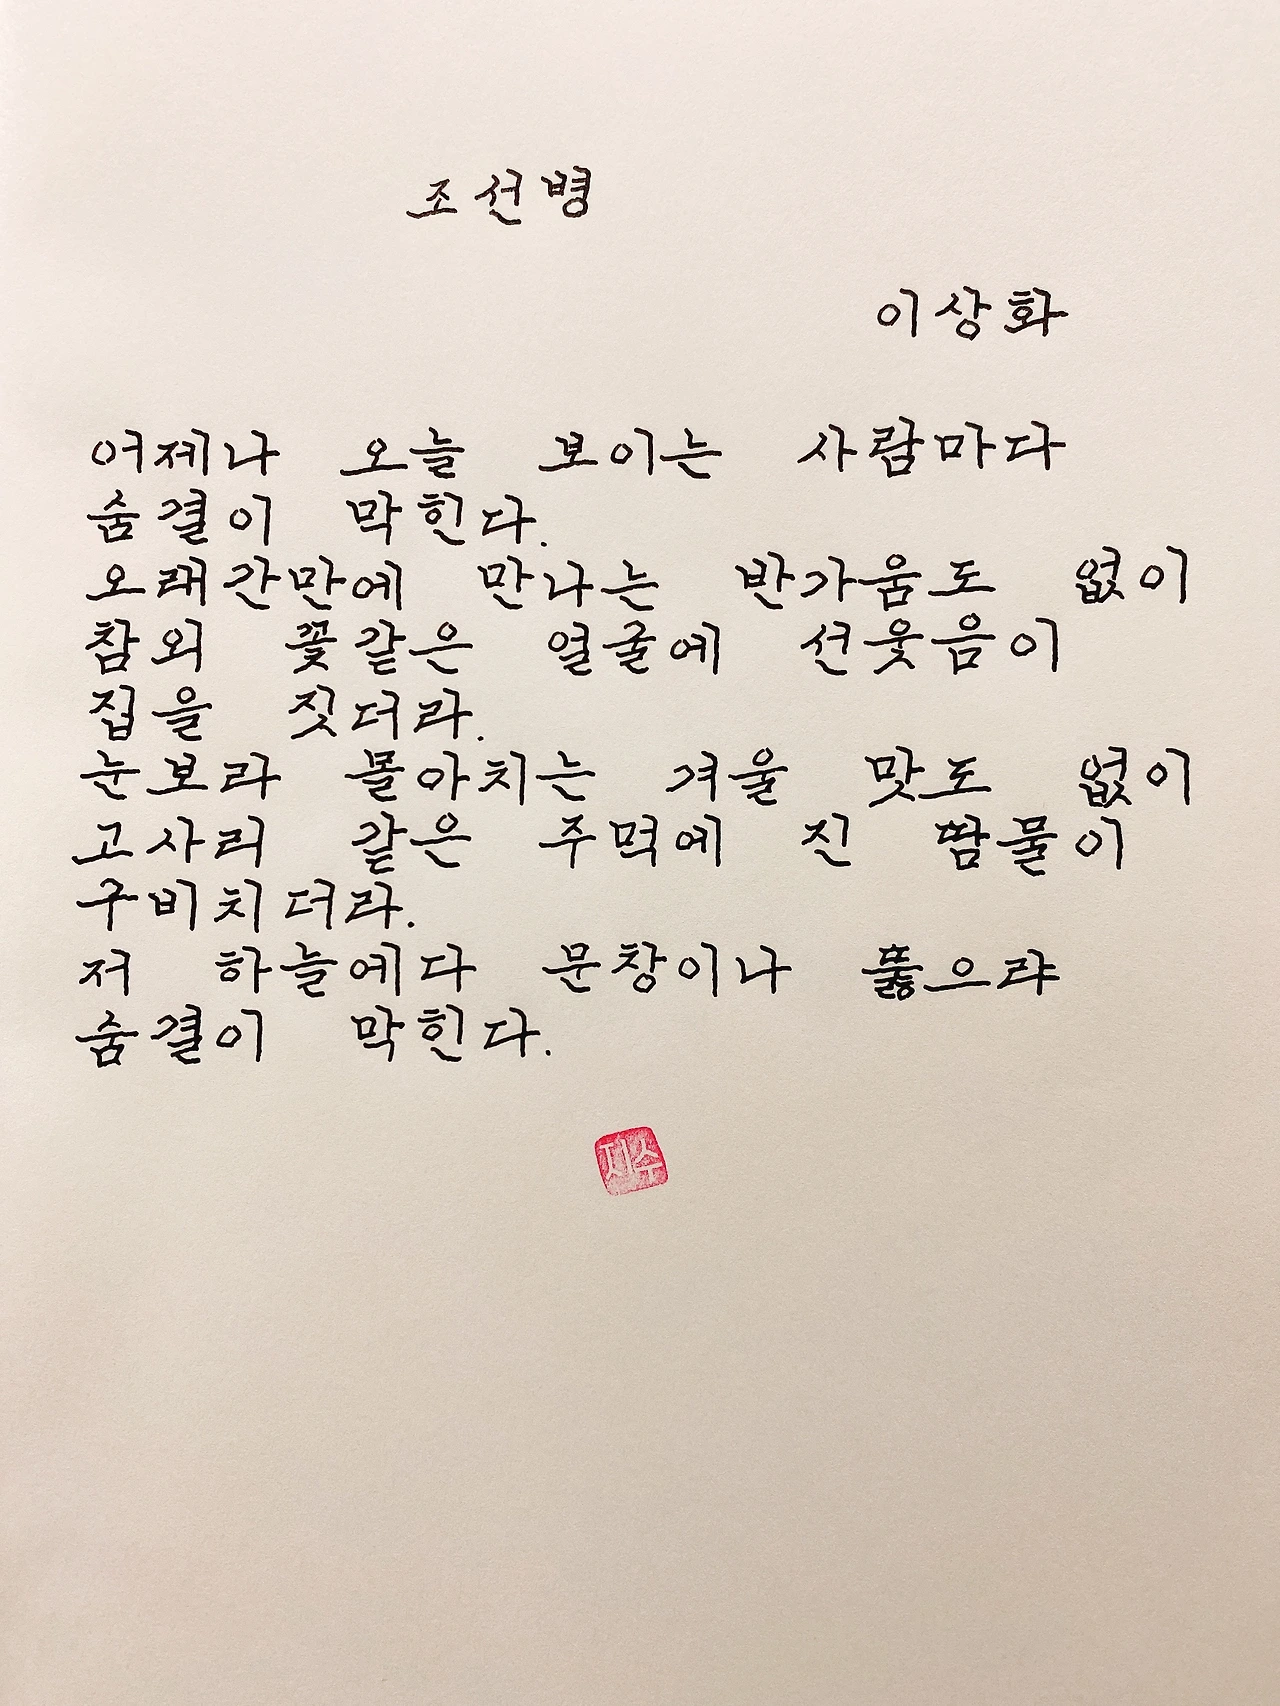 조선병
이상화
어제나 오늘 보이는 사람마다
숨결이 막힌다.
오래간만에 만나는 반가움도 없이
참외 꽃같은 얼굴에 선웃음이
집을 짓더라.
눈보라 몰아치는 겨울 맛도 없이
고사리 같은 주먹에 진 땀물이
구비치더라.
저 하늘에다 문창이나 뚫으랴
숨결이 막힌다.
지수